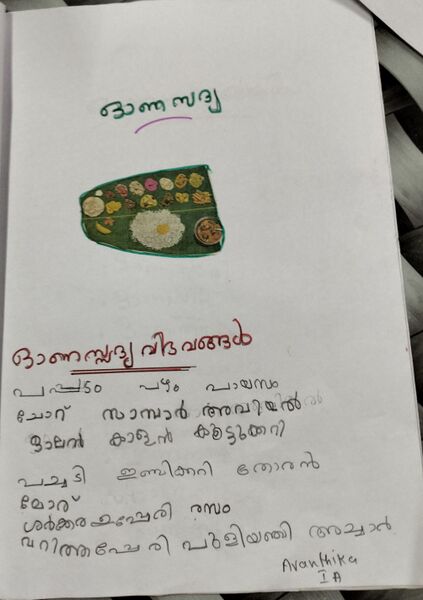 ഓണസദ്യ
ഓണസ്സദ്യ വിഭവങ്ങൾ
പപ്പടം പഴം പായസം
ചോറ് സാമ്പാർ അവിയൽ
ഓലൻ കാളൻ കൂട്ടുക്കറി
പച്ചടി ഇഞ്ചിക്കറി തോരൻ
മോര്
ശർക്കര ഉപ്പേരി രസം
വറുത്തുപ്പേരി പുളിയഞ്ചി അച്ചാർ
Avanthika
I A